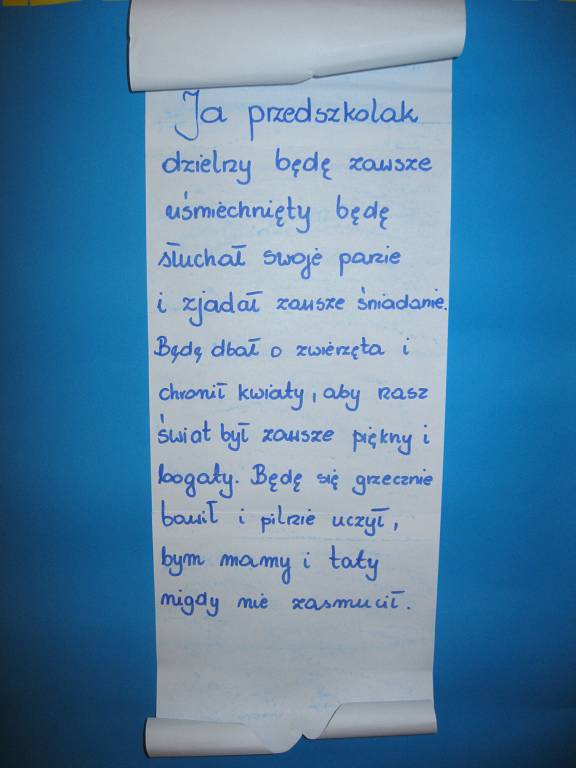 Ja przedszkolak
dzielny będę zawsze
uśmiechnięty będę
słuchał swoje panie
i zjadał zawsze śniadanie.
Będę dbał o zwierzęta i
chronił kwiaty, aby nasz
świat był zawsze piękny i
bogaty. Będę się grzecznie
bawił i pilnie uczył,
bym mamy i taty
nigdy nie zasmucił.